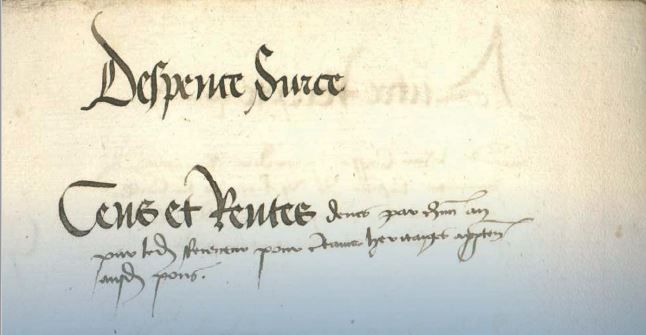 Despence Surce
Cens et Rentes deues par chũn an
par led̃ Receveur pour c̃taines heritages appten̄
ausd̃ pons.